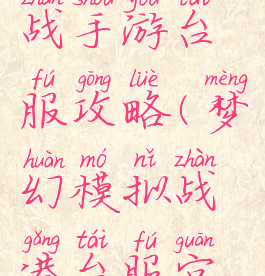 zhàn shǒu yóu tái
战手游台
fú gōng lüè mèng
服攻略(梦
huàn mó nǐ zhàn
幻模拟战
gǎng tái fú guān
港台服官